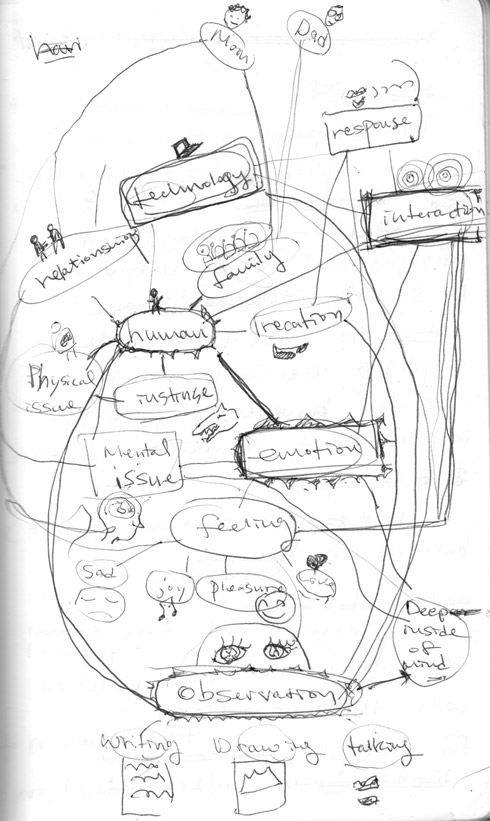 Mom
Dad
response
technology
interaction
relationship
family
human
recation
Physical
issue
Mental
issue
emotion
feeling
Sad
joy
pleasure
love
Deep
inside
of
mind
observation
writing
Drawing
talking